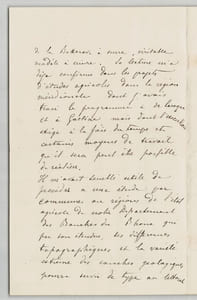 de la Beauce : œuvre, véritable
modèle à suivre. Sa lecture m'a
déjà confirmé dans les projets
d'études agricoles dans la région
méridionale dont j'avais
tracé le programme à
et à Gastine mais dont l'exécution
exige à la fois du temps et
certains moyens de travail
qu'il sera peut être possible
de réunir.
Il m'avait semblé utile de
procéder à une étude par
communes ou régions de l'état
agricole de notre département
des Bouches du Rhône que
par son étendue, les différences
topographiques et la variété
extrême des couches géologiques
pourra servir de type au littoral